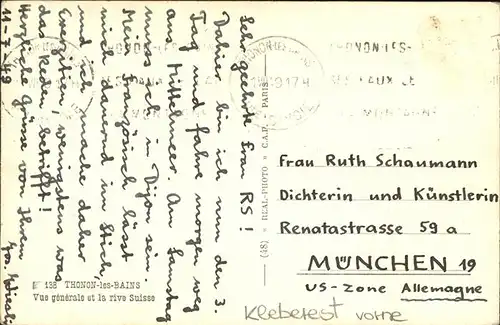 Sehr geehrte Frau RS!
Dahier bin ich nun den 3.
Tag und fahre morgen weg
ans Mittelmeer. Am Samstag
muss ich in Dijon sein.
Mein Französisch lässt
mich dauernd im Stich
und ich mache daher
Exerzitien, wenigstens was
das Reden betrifft!
Herzliche Grüsse von Ihrem
11-7-49
138 THONON-les-BAINS
Vue générale et la rive Suisse
(48) « REAL-PHOTO » C.A.P. - PARIS
THONON-LES-
Frau Ruth Schaumann
Dichterin und Künstlerin
Renatastrasse 59 a
MÜNCHEN 19
US-Zone Allemagne
Kleberest vorne